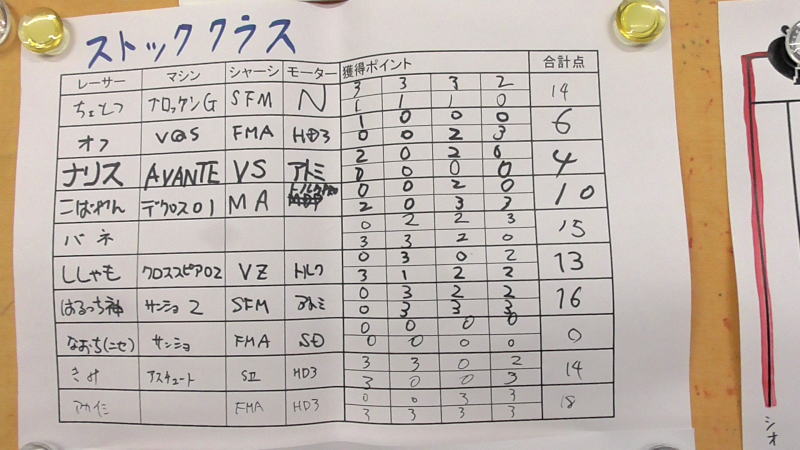 ストッククラス
レーサー マシン シャーシ モーター 獲得ポイント 合計点
ちょとつ ブロッケンG SFM N 3 3 3 2 14
1 1 1 0
オフ VQS FMA HD3 1 0 0 0 6
0 0 2 3
ナリス AVANTE VS アトミ 2 0 2 0 4
0 0 0 0
こばやん デクロス01 MA トルク 0 0 2 0 10
2 0 3 3
バネ 0 2 2 3 15
3 3 2 0
ししゃも クロススピア02 VZ トルク 0 3 0 2 13
3 1 2 2
はるっち神 サンショ2 SFM アトミ 0 3 2 2 16
0 3 3 3
なおっち(ニセ) サンショ FMA SD 0 0 0 0 0
0 0 0 0
きみ アスチュート SⅡ HD3 3 3 0 2 14
3 0 0 3
アカイミ FMA HD3 0 0 3 3 18
3 3 3 3
シオ